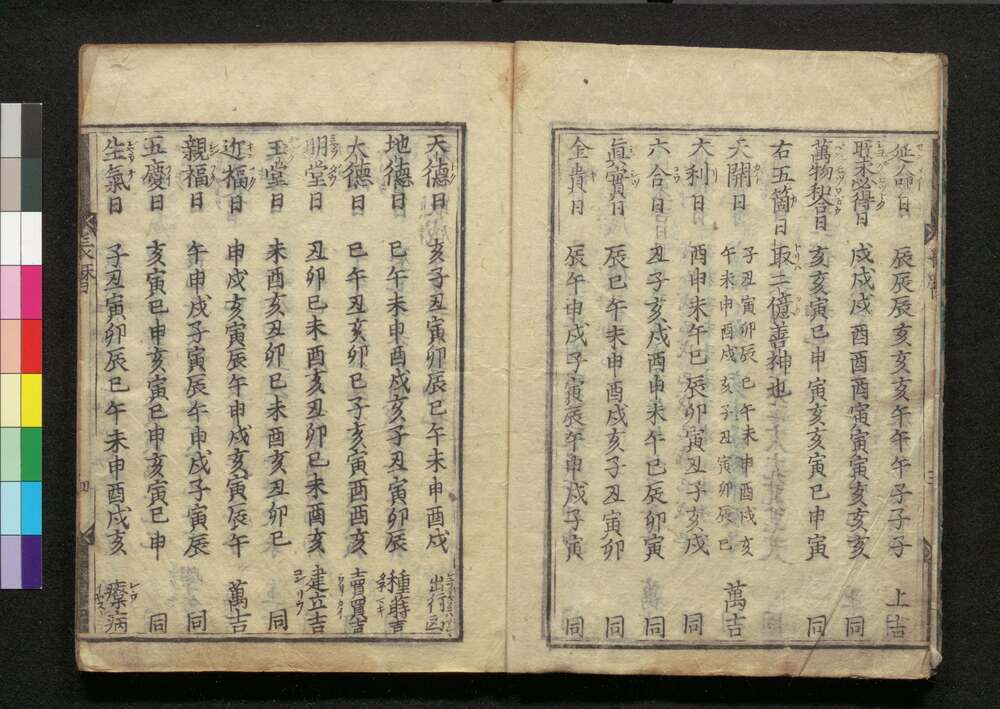 延命日 辰辰辰亥亥亥午午午子子子 上吉
聖求必得日 戌戌戌酉酉酉寅寅寅亥亥亥 同
萬物和合日 亥亥寅巳申寅亥亥寅巳申寅 同
右五箇日取二億善神也
天開日 子丑寅卯辰巳午未申酉戌亥 午未申酉戌亥子丑寅卯辰巳 萬吉
大利日 酉申未午巳辰卯寅丑子亥戌 同
六合日 丑子亥戌酉申未午巳辰卯寅 同
眞實日 辰巳午未申酉戌亥子丑寅卯 同
金貴日 辰午申戌子寅辰午申戌子寅 同
天德日 亥子丑寅卯辰巳午未申酉戌 出行吉
地德日 巳午未申酉戌亥子丑寅卯辰 種蒔吉
大德日 巳午丑亥卯巳子亥寅酉酉亥 賣買吉
明堂日 丑卯巳未酉亥丑卯巳未酉亥 建立吉
玉堂日 未酉亥丑卯巳未酉亥丑卯巳 同
近福日 申戌亥寅辰午申戌亥寅辰午 萬吉
親福日 午申戌子寅辰午申戌子寅辰 同
五慶日 亥寅巳申亥寅巳申亥寅巳申 同
生氣日 子丑寅卯辰巳午未申酉戌亥 療病
長暦
四